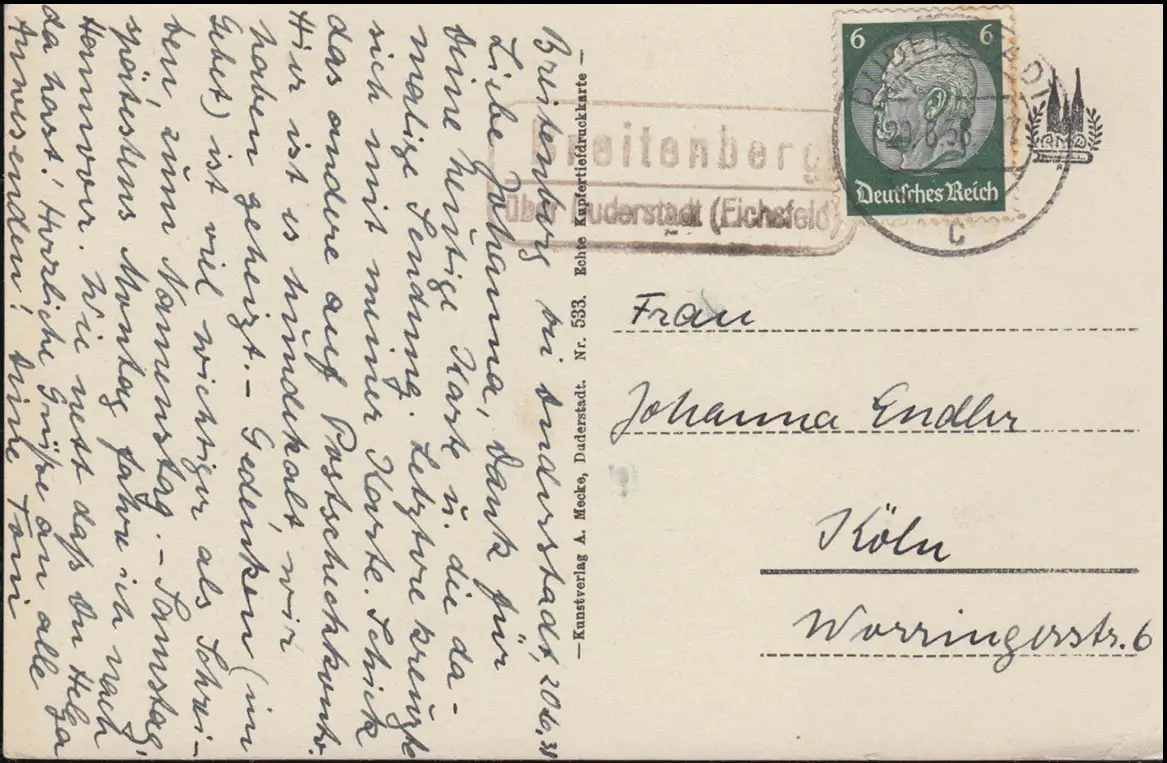 Breitenberg bei Duderstadt, 20.6.38
Liebe Johanna, Dank für
Deine heutige Karte u. die da-
malige Sendung. Letztere kreuzte
sich mit meiner Karte. Schick
das andere auf Postscheckkonto.
Hier ist es hundekalt, wir
haben geheizt. – Gedenken (im
Gebet) ist viel wichtiger als Schrei-
ben, zum Namenstag. – Samstag,
spätestens Montag fahre ich nach
Hannover. Wie nett daß Du Helga
da hast! Herzliche Grüße an alle
Anwesenden! Deine Toni
— Kunstverlag A. Mecke, Duderstadt. Nr. 533. Echte Kupfertiefdruckkarte —
Breitenberg
über Duderstadt (Eichsfeld)
6 6
Deutsches Reich
c
AMD
Frau
Johanna Endler
Köln
Worringerstr. 6